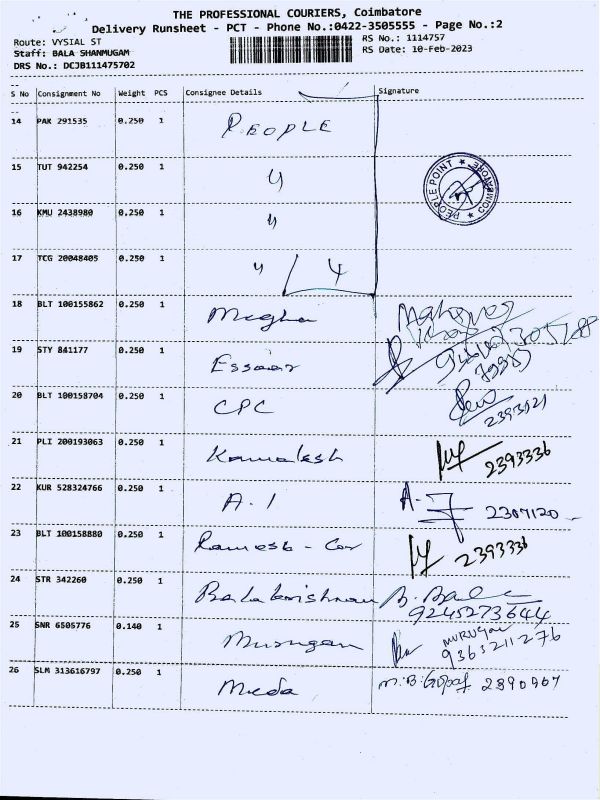 THE PROFESSIONAL COURIERS, Coimbatore
Delivery Runsheet - PCT - Phone No.:0422-3505555 - Page No.:2
Route: VYSIAL ST
RS No.: 1114757
Staff: BALA SHANMUGAM
RS Date: 10-Feb-2023
DRS No.: DCJB111475702
S No Consignment No Weight PCS Consignee Details Signature
14 PAK 291535 0.250 1 PEOPLE
15 TUT 942254 0.250 1 "
PEOPLE POINT ★ COIMBATORE ★
16 KMU 2438980 0.250 1 "
17 TCG 20048405 0.250 1 " / 4
18 BLT 100155862 0.250 1 Megha
19 STY 841177 0.250 1 Essaar
20 BLT 100158704 0.250 1 CPC 2393521
21 PLI 200193063 0.250 1 Kamalesh 2393336
22 KUR 528324766 0.250 1 A.1 2307120
23 BLT 100158880 0.250 1 Ramesh - Car 2393336
24 STR 342260 0.250 1 Balakrishnan B. Bala
9245273644
25 SNR 6505776 0.140 1 Murugan MURUGAN
9363211276
26 SLM 313616797 0.250 1 Meda M.B.Gopal 2390907